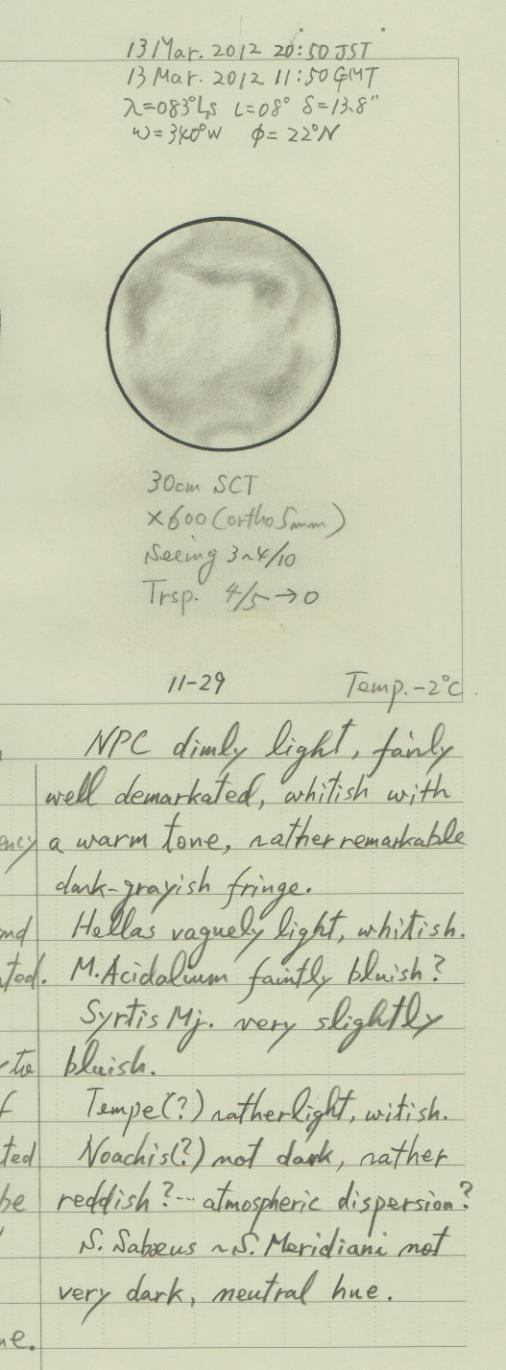 13 Mar. 2012 20:50 JST
13 Mar. 2012 11:50 GMT
λ=083°Ls L=08° δ=13.8"
ω=340°W φ=22°N
30cm SCT
×600 (ortho 5mm)
Seeing 3~4/10
Trsp. 4/5→0
11-29 Temp. -2°C
NPC dimly light, fairly
well demarkated, whitish with
ency a warm tone, rather remarkable
dark-grayish fringe.
nd Hellas vaguely light, whitish.
ted. M.Acidalium faintly bluish?
Syrtis Mj. very slightly
to bluish.
f Tempe(?) rather light, witish.
ted Noachis(?) not dark, rather
be reddish?... atmospheric dispersion?
S. Sabæus ~S. Meridiani not
very dark, neutral hue.
ne.